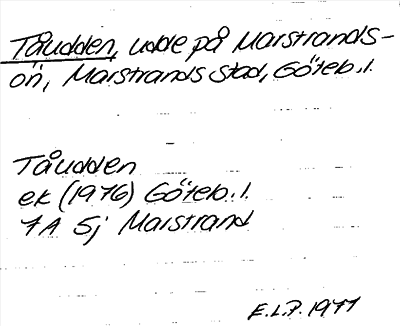 Tåudden, udde på Marstrands-
ön, Marstrands stad, Göteb. l.
Tåudden
ek (1976) Göteb. l.
7A 5j Marstrand
E.L.P. 1977